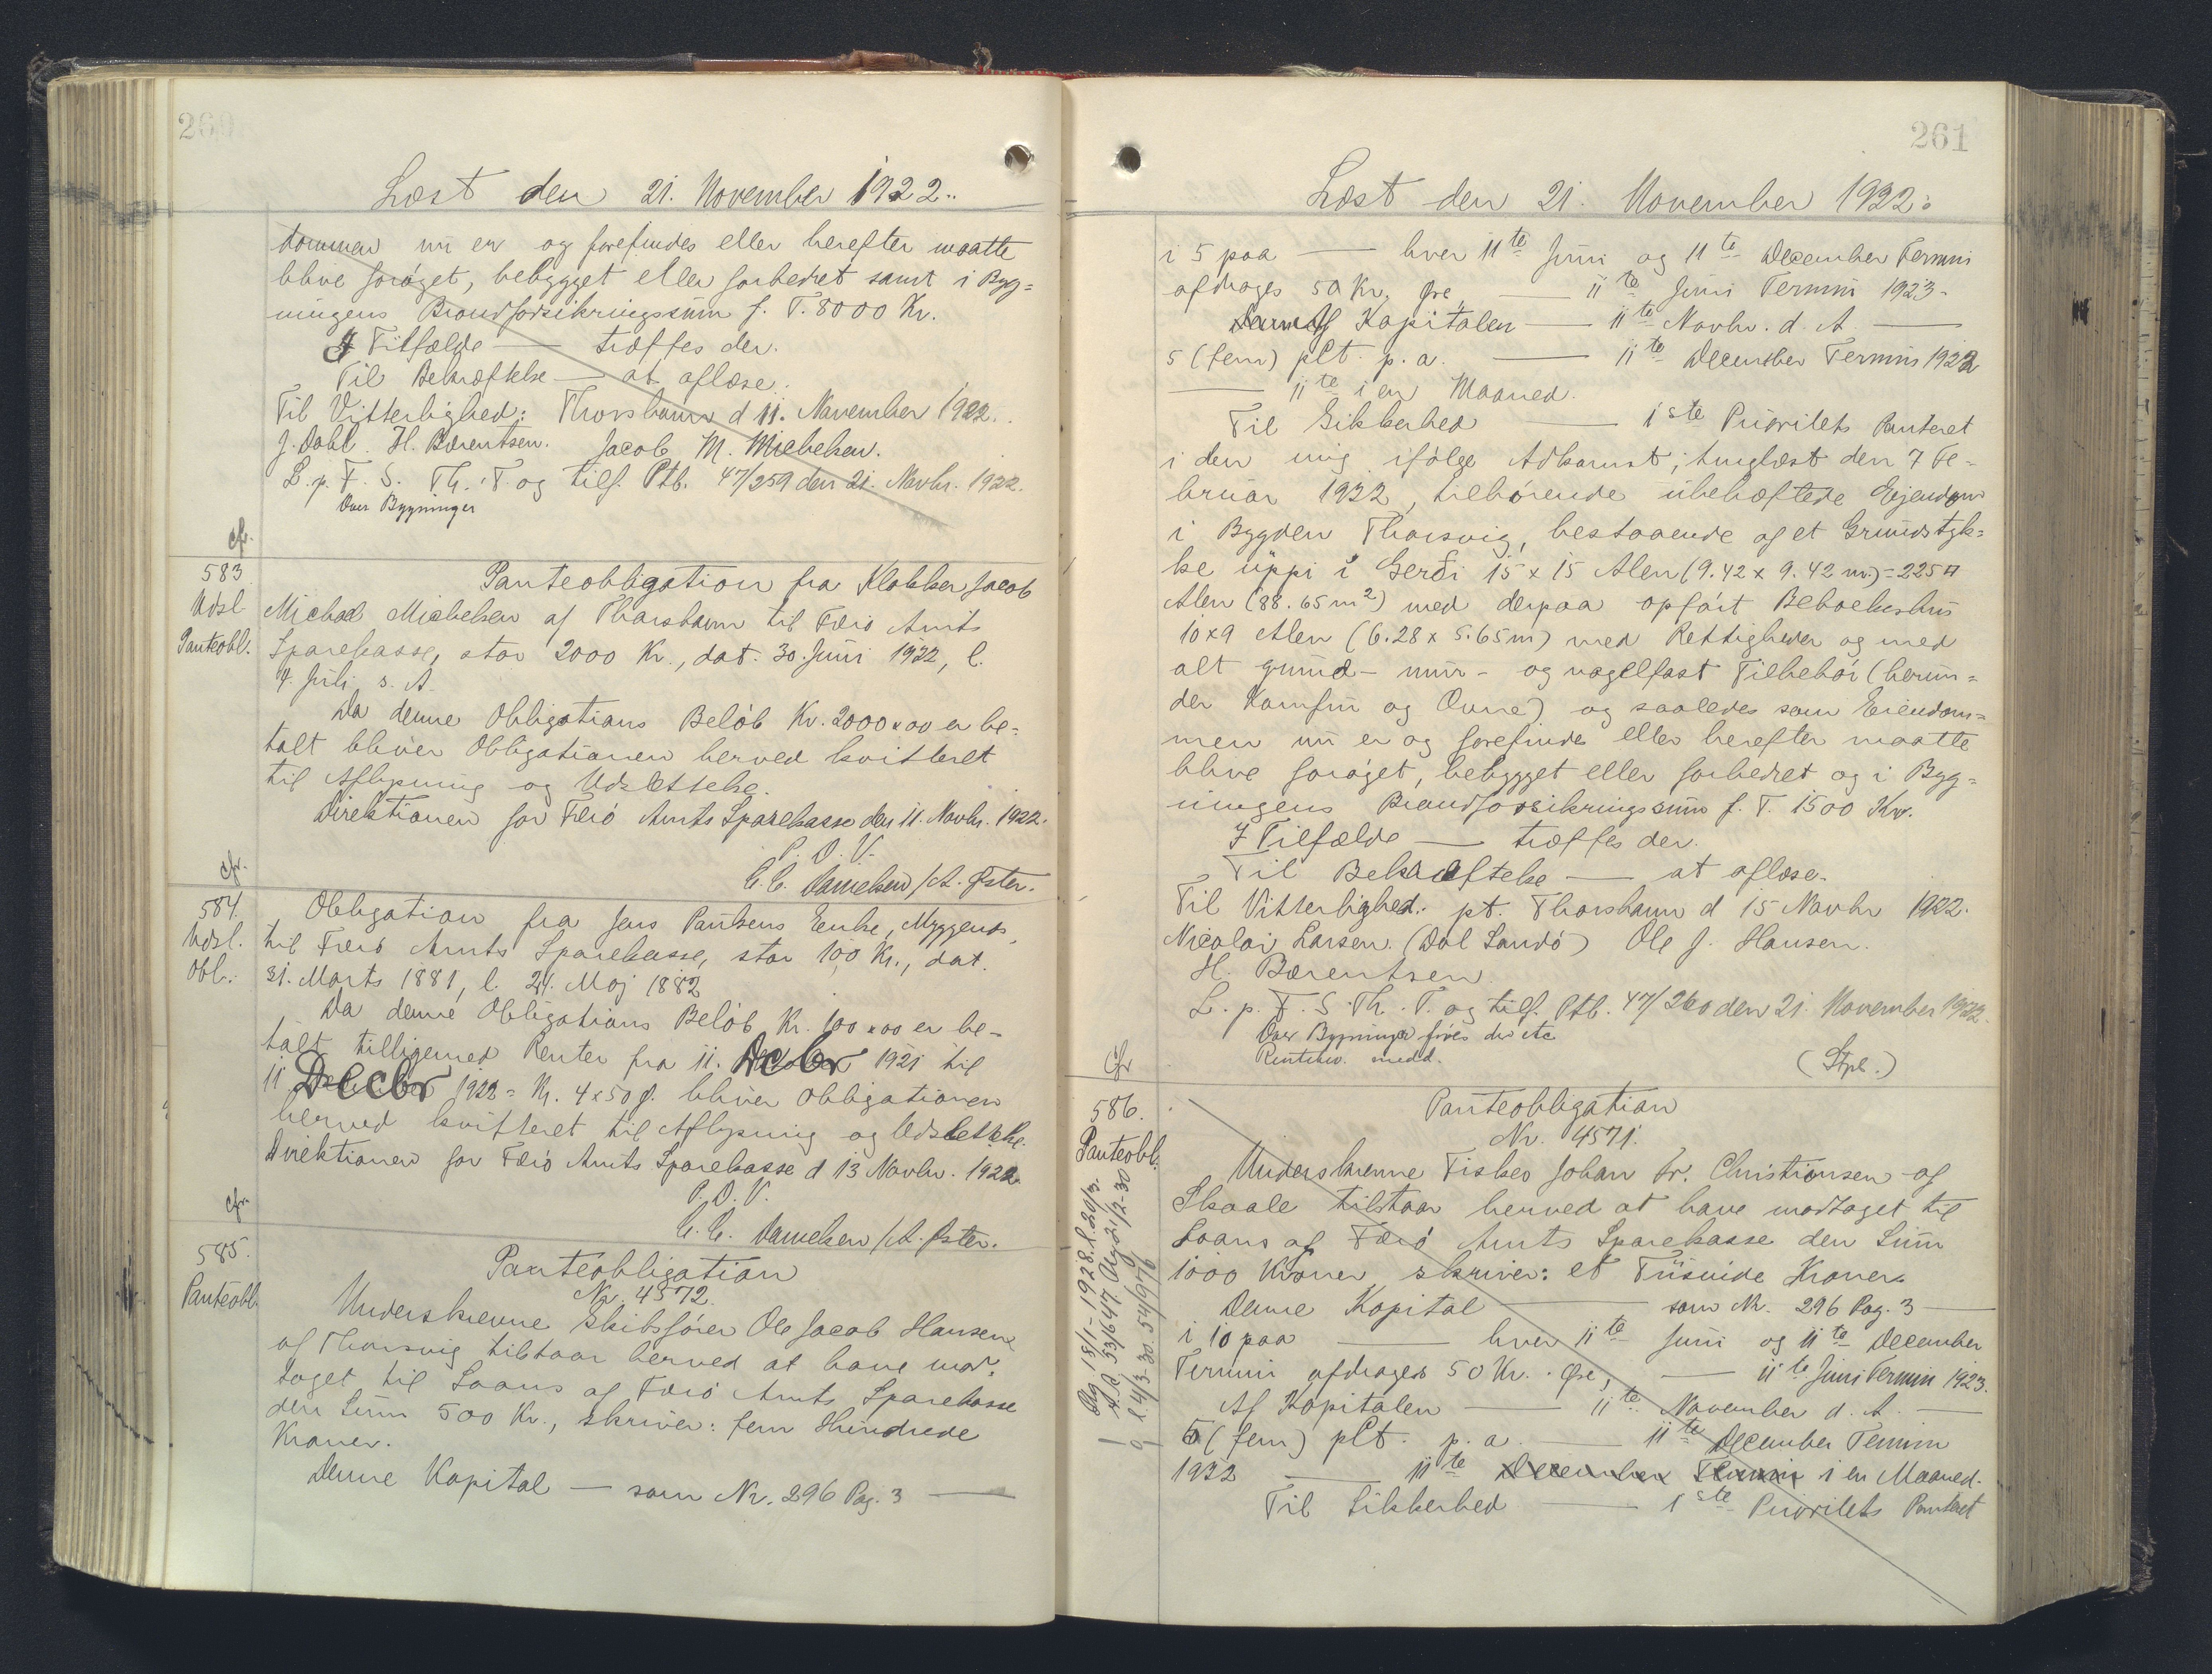 260
Læst den 21. November 1922..
dommen nu er og forefindes eller herefter maatte
blive forøget, bebygget eller forbedret samt i Byg=
ningens Brandforsikringssum f. T. 8000 Kr.
I Tilfælde — træffes der.
Til Bekræftelse — at aflæse.
Til Vitterlighed: Thorshavn d 11. November 1922.
J. Dahl. H. Bærentsen. Jacob M. Michelsen.
L. p. F. S. Th. T. og tilf. Ptb. 47/259 den 21. Novbr. 1922.
Over Bygninger
cfr.
583
Udsl
Panteobl.
Panteobligation fra Klokker Jacob
Michael Michelsen af Thorshavn til Færø Amts
Sparekasse, stor 2000 Kr., dat. 30. Juni 1922, l.
4. Juli s. A.
Da denne Obligations Beløb Kr. 2000 x 00 er be=
talt bliver Obligationen herved kvitteret
til Aflysning og Udslettelse.
Direktionen for Færø Amts Sparekasse den 11. Novbr. 1922.
P. D. V.
C. C. Danielsen /A. Øster.
cfr.
584.
Udsl.
Obl.
Obligation fra Jens Paulsens Enke, Myggenæs,
til Færø Amts Sparekasse, stor 100 Kr., dat.
31. Marts 1881, l. 24. Maj 1882
Da denne Obligations Beløb Kr. 100 x 00 er be-
talt tilligemed Renter fra 11. Dcbr 1921 til
11 Decbr 1922 = Kr. 4 x 50 Ø. bliver Obligationen
herved kvitteret til Aflysning og Udslettelse.
Direktionen for Færø Amts Sparekasse d 13 Novbr. 1922.
P. D. V.
C. C. Danielsen /A. Øster.
cfr.
585.
Panteobl.
Panteobligation
Nr. 4572.
Underskrevne Skibsfører Ole Jacob Hansen
af Thorsvig tilstaar herved at have mod=
taget til Laans af Færø Amts Sparekasse
den Sum 500 Kr., skriver: fem Hundrede
Kroner.
Denne Kapital — som Nr. 296 Pag. 3 —
261
Læst den 21. November 1922.
i 5 paa — hver 11te Juni og 11te December Termin
afdrages 50 Kr. Øre, — 11te Juni Termin 1923.
Af Kapitalen — 11te Novbr. d. A. —
5 (fem) pCt. p. a. — 11te December Termin 1922
— 11te i en Maaned.
Til Sikkerhed — 1ste Prioritets Panteret
i den mig ifølge Adkomst, tinglæst den 7 Fe-
bruar 1922, tilhørende ubehæftede Ejendom
i Bygden Thorsvig, bestaaende af et Grundstyk=
ke uppi i Gerði 15 x 15 Alen (9.42 x 9.42 m.) = 225 □
Alen (88.65 m2) med derpaa opført Beboelseshus
10x9 Alen (6.28 x 5.65m) med Rettigheder og med
alt grund- mur- og nagelfast Tilbehør (herun=
der Komfur og Ovne) og saaledes som Eiendom=
men nu er og forefindes eller herefter maatte
blive forøget, bebygget eller forbedret og i Byg=
ningens Brandforsikringssum f. T. 1500 Kr.
I Tilfælde — træffes der.
Til Bekræftelse — at aflæse.
Til Vitterlighed: pt. Thorshavn d 15 Novbr 1922.
Nicolai Larsen. (Dal Sandø) Ole J. Hansen.
H. Bærentsen
L. p. F. S. Th. T. og tilf. Ptb. 47/260 den 21. November 1922.
Over Bygninger føres der etc
Rentebev. medd.
(Stpl.)
cfr
586.
Panteobl.
Panteobligation
Nr. 4571.
Underskrevne Fisker Johan Fr. Christiansen af
Skaale tilstaar herved at have modtaget til
Laans af Færø Amts Sparekasse den Sum
1000 Kroner, skriver: et Tusinde Kroner.
Denne Kapital — som Nr. 296 Pag. 3 —
i 10 paa — hver 11te Juni og 11te December
Termin afdrages 50 Kr. Øre, — 11te Juni Termin 1923.
Af Kapitalen — 11te November d. A. —
5 (fem) pCt. p. a. — 11te December Termin
1922 — 11te December Termin i en Maaned.
Til Sikkerhed — 1ste Prioritets Panteret